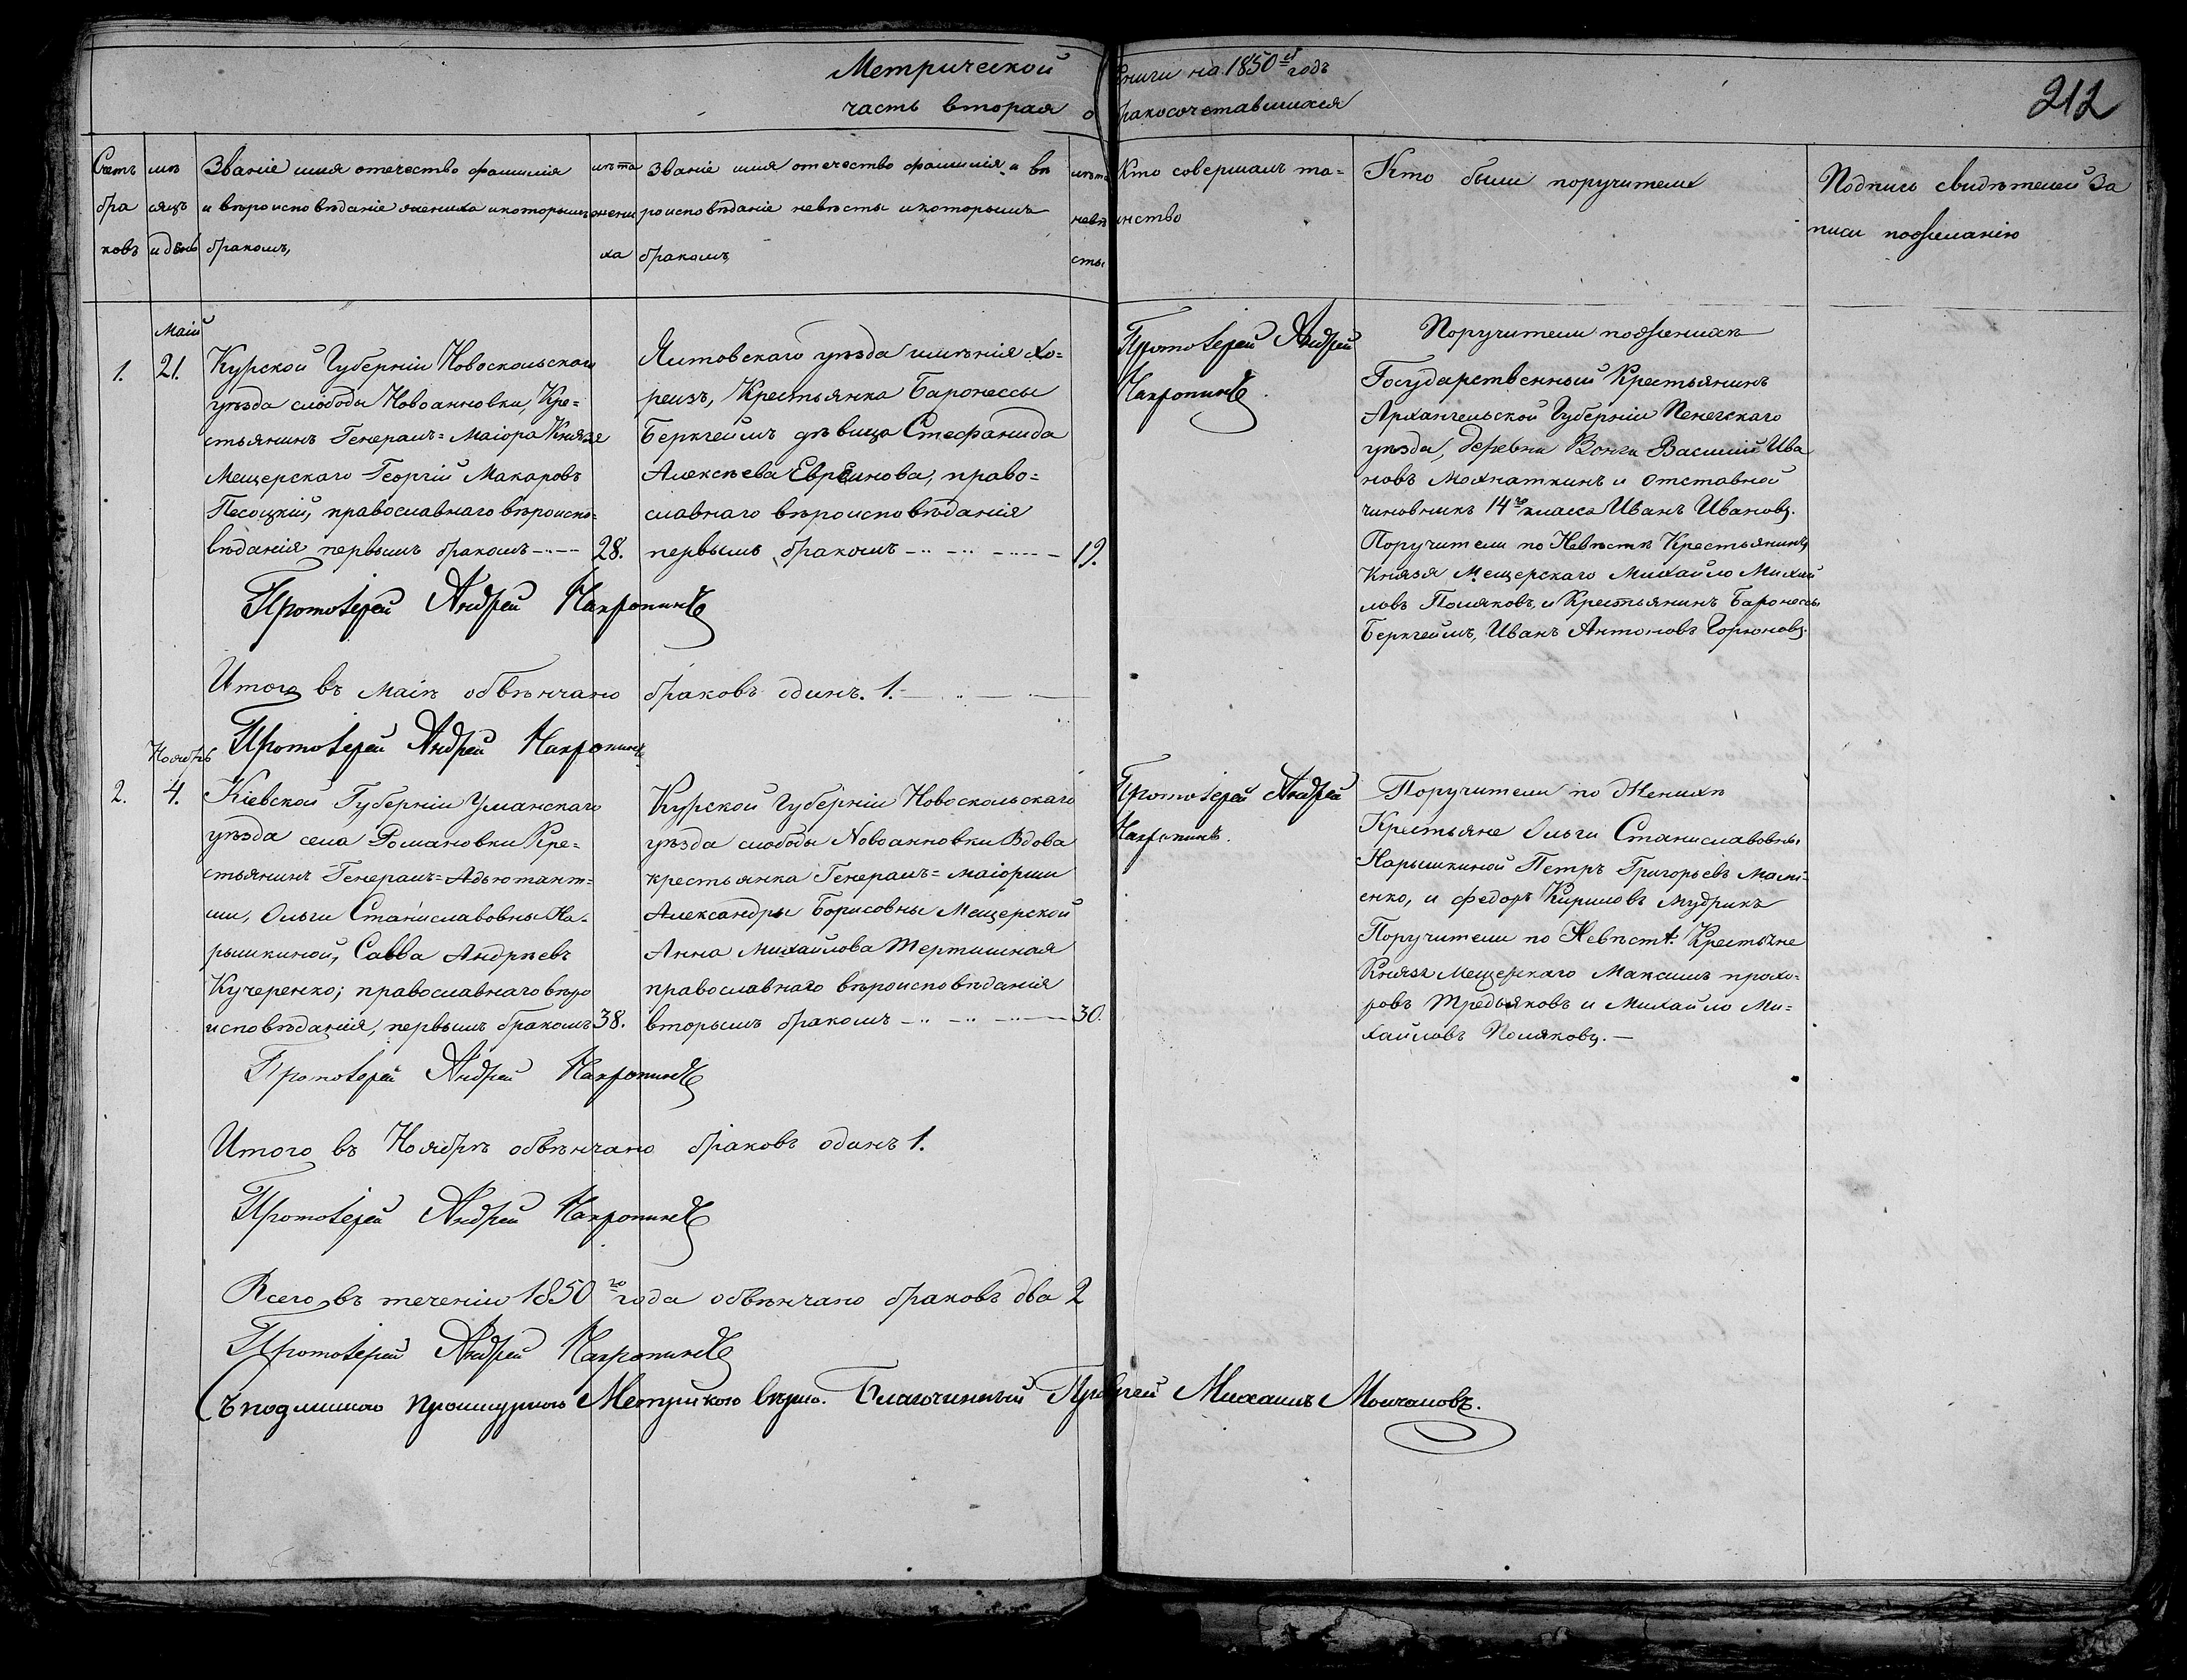 Метрической книги на 1850й годъ
часть вторая о бракосочетавшихся
212
Счетъ браковъ
мѣсяцъ и день
Званіе имя отечество фамилія
и вѣроисповѣданіе жениха и которымъ
бракомъ,
лѣта жениха
Званіе имя отечество фамилія, и вѣ
роисповѣданіе невѣсты и которымъ
бракомъ
лѣта невѣсты
Кто совершалъ та=
инство
Кто были поручители
Подпись свидѣтелей за
писи по желанію
Маій
1. 21.
Курской Губерніи Новоскольскаго
уѣзда слободы Новоанновки, Кре=
стьянинъ Генералъ=Маіора Князя
Мещерскаго Георгій Макаровъ
Песоцкій, православнаго вѣроиспо=
вѣданія первымъ бракомъ 28.
Ялтовскаго уѣзда имѣнія Хо=
реизъ, Крестьянка Баронессы
Беркгеймъ дѣвица Стефанида
Алексѣева Евреинова, право=
славнаго вѣроисповѣданія
первымъ бракомъ 19.
Протоіерей Андрей
Накропинъ.
Поручители по женихѣ
Государственный Крестьянинъ
Архангельской Губерніи Пенегскаго
уѣзда, деревни Вонги Василій Ива
новъ Мохнаткинъ и отставной
чиновникъ 14го класса Иванъ Ивановъ.
Поручители по Невѣстѣ Крестьянинъ
Князя Мещерскаго Михайло Михай
ловъ Поляковъ, и Крестьянинъ Баронессы
Беркгеймъ, Иванъ Антоновъ Горюновъ.
Протоіерей Андрей Накропинъ
Итого въ маіѣ обвѣнчано браковъ одинъ. 1.
Протоіерей Андрей Накропинъ
Ноябрь
2. 4.
Кіевской Губерніи Уманскаго
уѣзда села Романовки Кре=
стьянинъ Генералъ=Адьютант=
ши, Ольги Станиславовны На=
рышкиной, Савва Андрѣевъ
Кучеренко; православнаго вѣро
исповѣданія, первымъ бракомъ 38.
Курской Губерніи Новоскольскаго
уѣзда слободы Новоанновки Вдова
крестьянка Генералъ=маіорши
Александры Борисовны Мещерской
Анна Михайлова Тертишная
православнаго вѣроисповѣданія
вторымъ бракомъ 30.
Протоіерей Андрей
Накропинъ.
Поручители по Женихѣ
Крестьяне Ольги Станиславовны
Нарышкиной Петръ Григорьевъ
енко, и Федоръ Кириловъ Мудрикъ
Поручители по Невѣстѣ Крестьяне
Князя Мещерскаго Максимъ Прохо=
ровъ Тредьяковъ и Михайло Ми=
хайловъ Поляковъ.
Протоіерей Андрей Накропинъ
Итого въ Ноябрѣ обвѣнчано браковъ одинъ 1.
Протоіерей Андрей Накропинъ
Всего въ теченіи 1850го года обвѣнчано браковъ два 2
Протоіерей Андрей Накропинъ
Съ подлинною вѣрно. Благочинный Михаилъ Молчановъ.